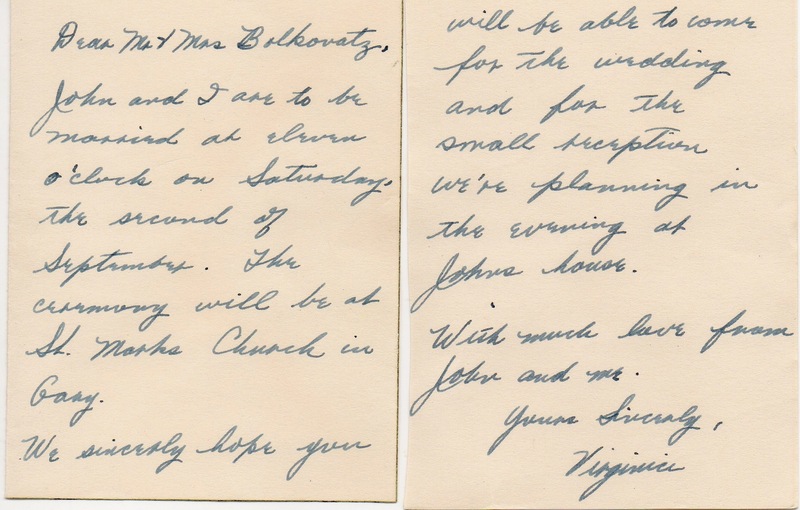 Dear Mr & Mrs Bolkovatz,
John and I are to be
married at eleven
o'clock on Saturday,
the second of
September. The
ceremony will be at
St. Marks Church in
Gary.
We sincerly hope you
will be able to come
for the wedding
and for the
small reception
we're planning in
the evening at
Johns house.
With much love from
John and me.
Yours Sincerly,
Virginia